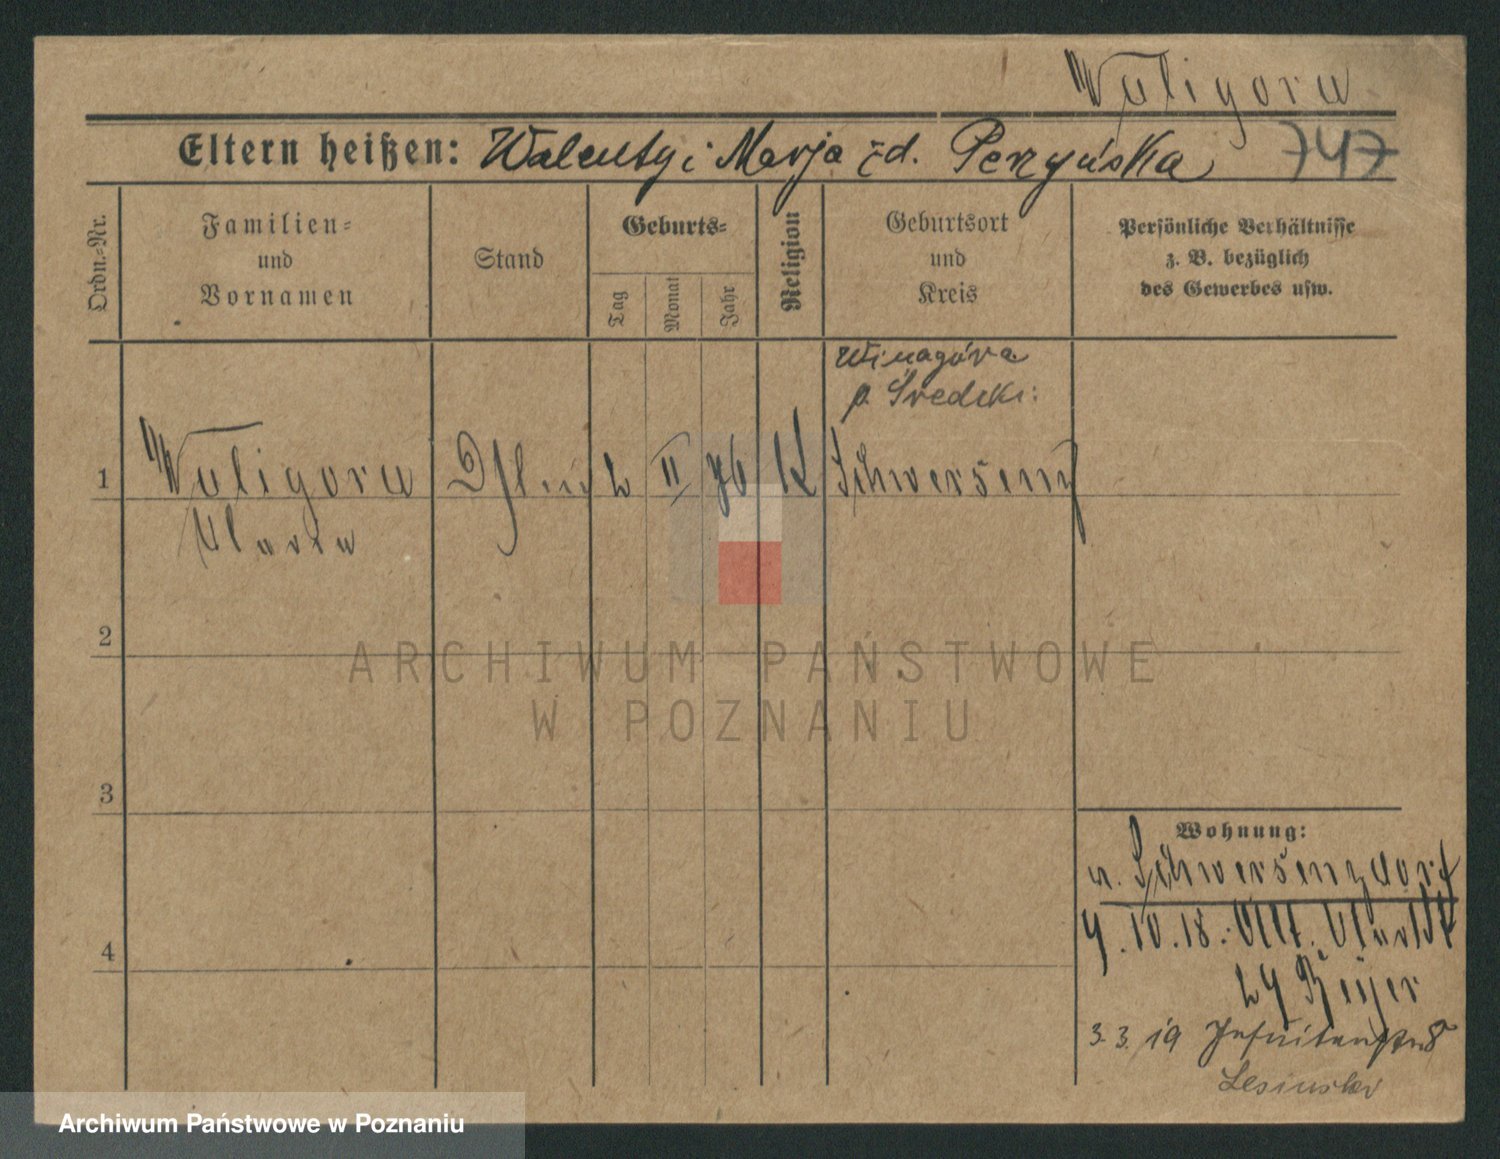 Waligora
Eltern heißen: Walenty i Marja zd. Pezyńska 747
Ordn.=Nr.
Familien=
und
Vornamen
Stand
Geburts=
Tag
Monat
Jahr
Religion
Geburtsort
und
Kreis
Persönliche Verhältnisse
z. B. bezüglich
des Gewerbes usw.
Winagóra
p. Średzki:
1 Waligora 2 II K Schwersenz
Maria
2
3
4
Wohnung:
n. Schwersenzdorf
4.10.18. Alt. Markt
24 Beyer
3.3.19 Jesuitenstr 8
Lesinski
ARCHIWUM PAŃSTWOWE
W POZNANIU
Archiwum Państwowe w Poznaniu